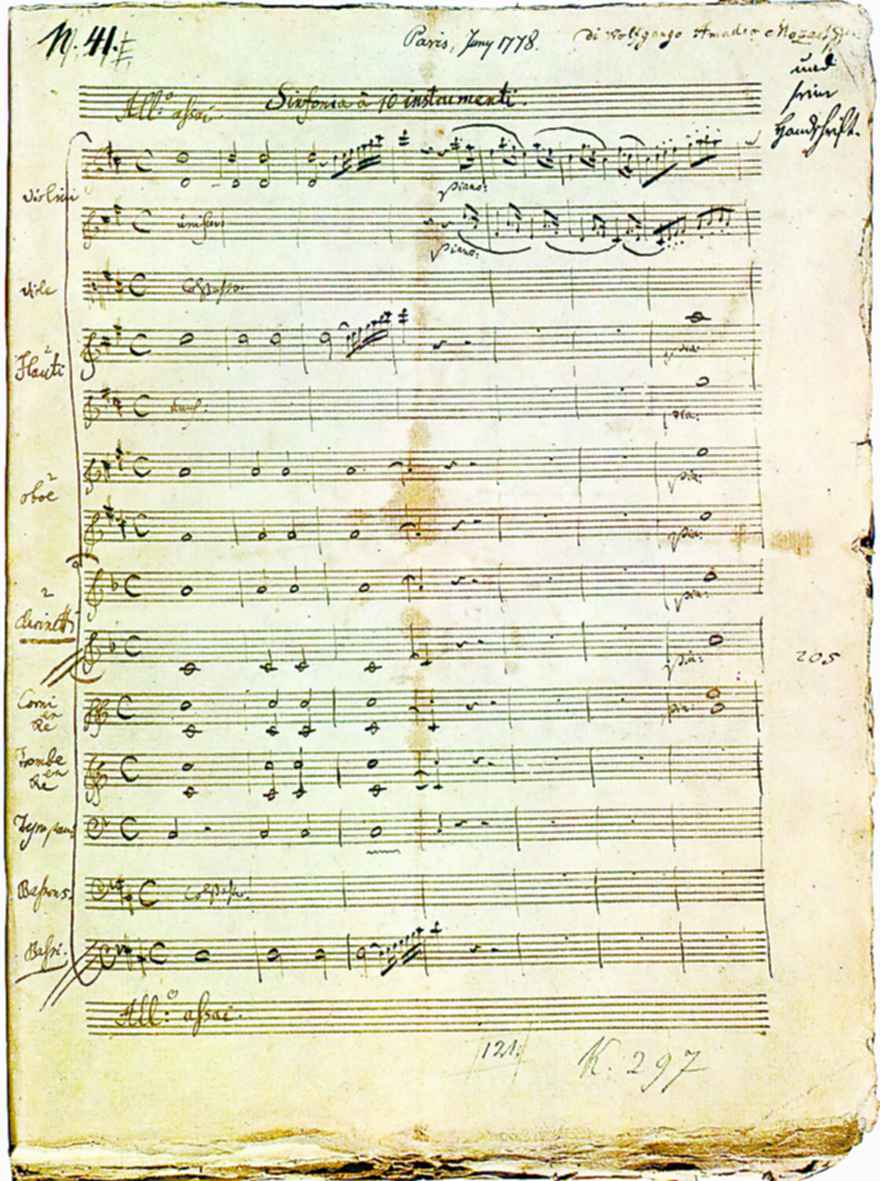 N. 41.
Paris, Juny 1778.
di Wolfgango Amadeo Mozart
und
seine
Handschrift.
All:o assai. Sinfonia à 10 instrumenti.
violini
piano:
unis:
piano:
viole
Col Basso.
2
Flauti
pia:
unis:
pia:
2
oboe
pia:
pia:
2
Clarinetti
pia:
pia:
205
Corni
en
Re
pia:
Trombe
en
Re
Tympani
Col Basso.
Bassi.
All:o assai.
121.
K. 297